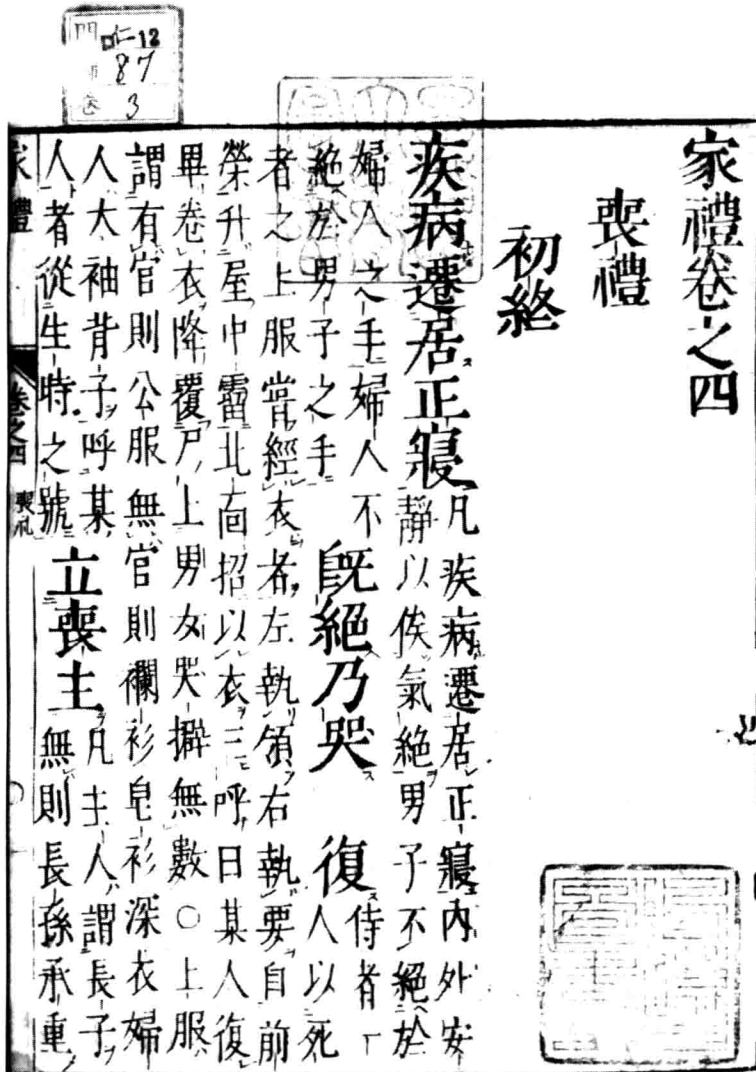 門 仁-12
87
卷 3
家禮卷之四
喪禮
初終
疾病遷居正寢
凡疾病遷居正寢內外安
靜以俟氣絕男子不絕於
婦人之手婦人不
絕於男子之手
旣絕乃哭
復
侍者一
人以死
者之上服嘗經衣者左執領右執要自前
榮升屋中霤北面招以衣三呼曰某人復
畢卷衣降覆尸上男女哭擗無數○上服
謂有官則公服無官則襴衫皂衫深衣婦
人大袖背子呼某
人者從生時之號
立喪主
凡主人謂長子
無則長孫承重
家禮 卷之四 喪礼